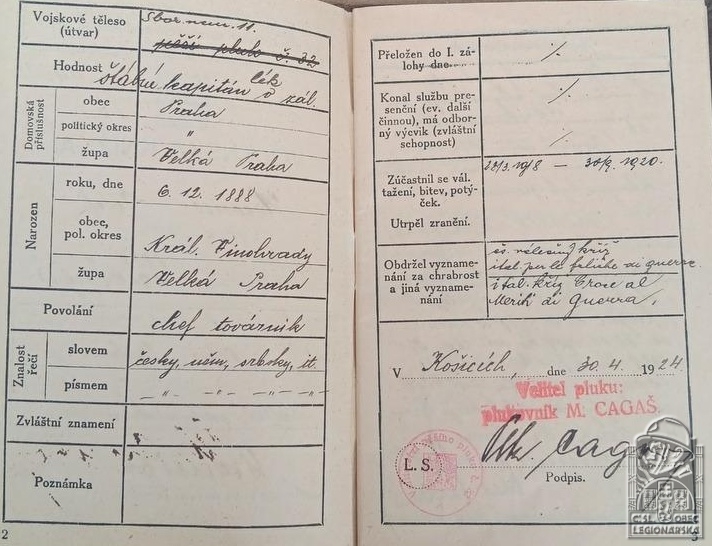 Vojskové těleso
(útvar)
Sbor. nem. 11.
pěší pluk č. 32
Hodnost
štábní kapitán lék v zál.
Domovská
příslušnost
obec
Praha
politický okres
"
župa
Velká Praha
Narozen
roku, dne
6. 12. 1888
obec,
pol. okres
Král. Vinohrady
župa
Velká Praha
Povolání
chef továrník
Znalost
řeči
slovem
česky, něm, srbsky, it.
písmem
-"- -"- -"- -"-
Zvláštní znamení
Poznámka
2
Přeložen do I. zá-
lohy dne
%
Konal službu pre-
senční (ev. další
činnou), má odbor-
ný výcvik (zvláštní
schopnost)
%
%
Zúčastnil se vál.
tažení, bitev, potý-
ček.
28/3. 1918 — 30/9. 1920.
Utrpěl zranění.
Obdržel vyzname-
nání za chrabrost
a jiná vyzname-
nání
čs válečný kříž
ital. per le fatiche di guerra
ital. kříž Croce al
Merito di Guerra,
V Košicích, dne 30. 4. 1924
Velitel pluku:
plukovník M. CAGAŠ.
L. S.
plk. Cagaš
Podpis.
3
ČSL. OBEC
LEGIONÁŘSKÁ